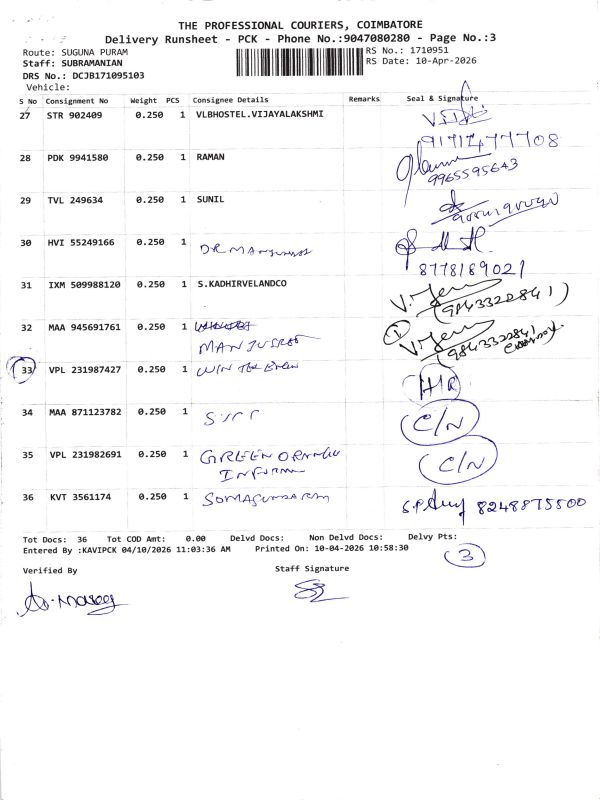 THE PROFESSIONAL COURIERS, COIMBATORE
Delivery Runsheet - PCK - Phone No.:9047080280 - Page No.:3
Route: SUGUNA PURAM
RS No.: 1710951
Staff: SUBRAMANIAN
RS Date: 10-Apr-2026
DRS No.: DCJB171095103
Vehicle:
S No Consignment No Weight PCS Consignee Details Remarks Seal & Signature
27 STR 902409 0.250 1 VLBHOSTEL.VIJAYALAKSHMI
9171477708
28 PDK 9941580 0.250 1 RAMAN
9965595643
29 TVL 249634 0.250 1 SUNIL
30 HVI 55249166 0.250 1 DR
8778189021
31 IXM 509988120 0.250 1 S.KADHIRVELANDCO
(9843322841)
32 MAA 945691761 0.250 1
MANJUSREE
(9843322841
33 VPL 231987427 0.250 1 WIN THE
34 MAA 871123782 0.250 1 C/N
35 VPL 231982691 0.250 1 GREEN C/N
36 KVT 3561174 0.250 1 SOMASUNDARAM 8248875500
Tot Docs: 36 Tot COD Amt: 0.00 Delvd Docs: Non Delvd Docs: Delvy Pts:
Entered By :KAVIPCK 04/10/2026 11:03:36 AM Printed On: 10-04-2026 10:58:30
3
Verified By Staff Signature